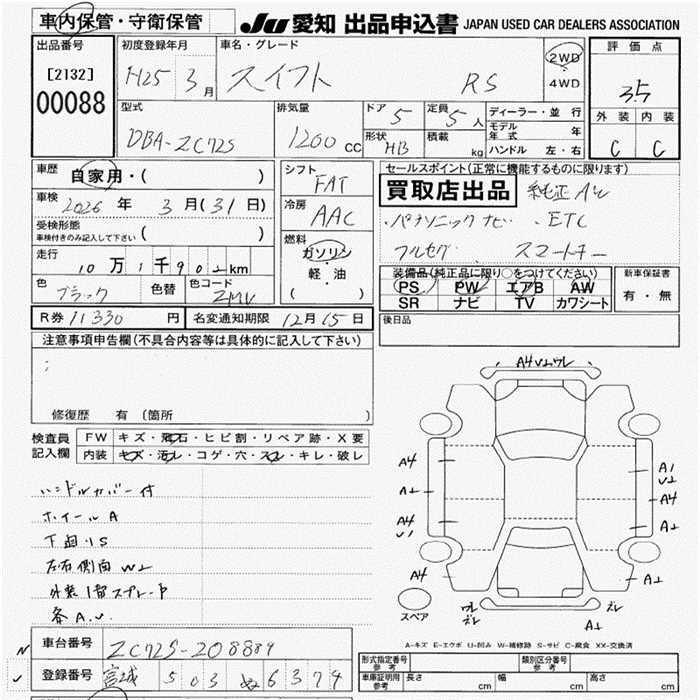 車内保管・守衛保管
JU 愛知 出品申込書 JAPAN USED CAR DEALERS ASSOCIATION
出品番号
[2132]
00088
初度登録年月
H25 3月
車名・グレード
スイフト RS
2WD
・
4WD
評価点
3.5
外装 内装
C C
型式
DBA-ZC72S
排気量
1200 CC
ドア 5
定員 5人
形状 HB
積載 kg
ディーラー・並行
モデル年式 年
ハンドル 左・右
車歴
自家用・( )
車検
2026年 3月(31日)
受検形態
車検付きのみ記入して下さい ( )
走行
10万1千902km
色
ブラック
色替
色コード
ZMV
シフト
FAT
冷房
AAC
燃料
ガソリン
・
軽・油
( )
セールスポイント(正常に機能するものに限ります)
買取店出品 純正AW
・パナソニックナビ ・ETC
フルセグ スマートキー
装備品(純正品に限り○をつけてください)
PS PW エアB AW
SR ナビ TV カワシート
新車保証書
有・無
R券 11330 円
名変通知期限 12月15日
後日品
注意事項申告欄(不具合内容等は具体的に記入して下さい)
修復歴 有 (箇所 )
検査員記入欄
FW キズ・飛石・ヒビ割・リペア跡・X要
内装 キズ・汚レ・コゲ・穴・スレ・キレ・破レ
ハンドルカバー付
ホイールA
下回りS
左右側面W2
外装1部スプレーP
各A.U.
A4 V2 ワレ
A4
A2
A4
V1
A4
A1
V2
A4
A2
A2
ワレ
ズレ
ズレ
A2
スペア
A-キズ E-エクボ U-凹み W-補修跡 S-サビ C-腐食 XX-交換済
車台番号 ZC72S-208889
登録番号 宮城 503 ぬ 6374
形式指定番号
参考
類別区分番号
参考
車庫証明用
参考
長さ cm 幅 cm 高さ cm